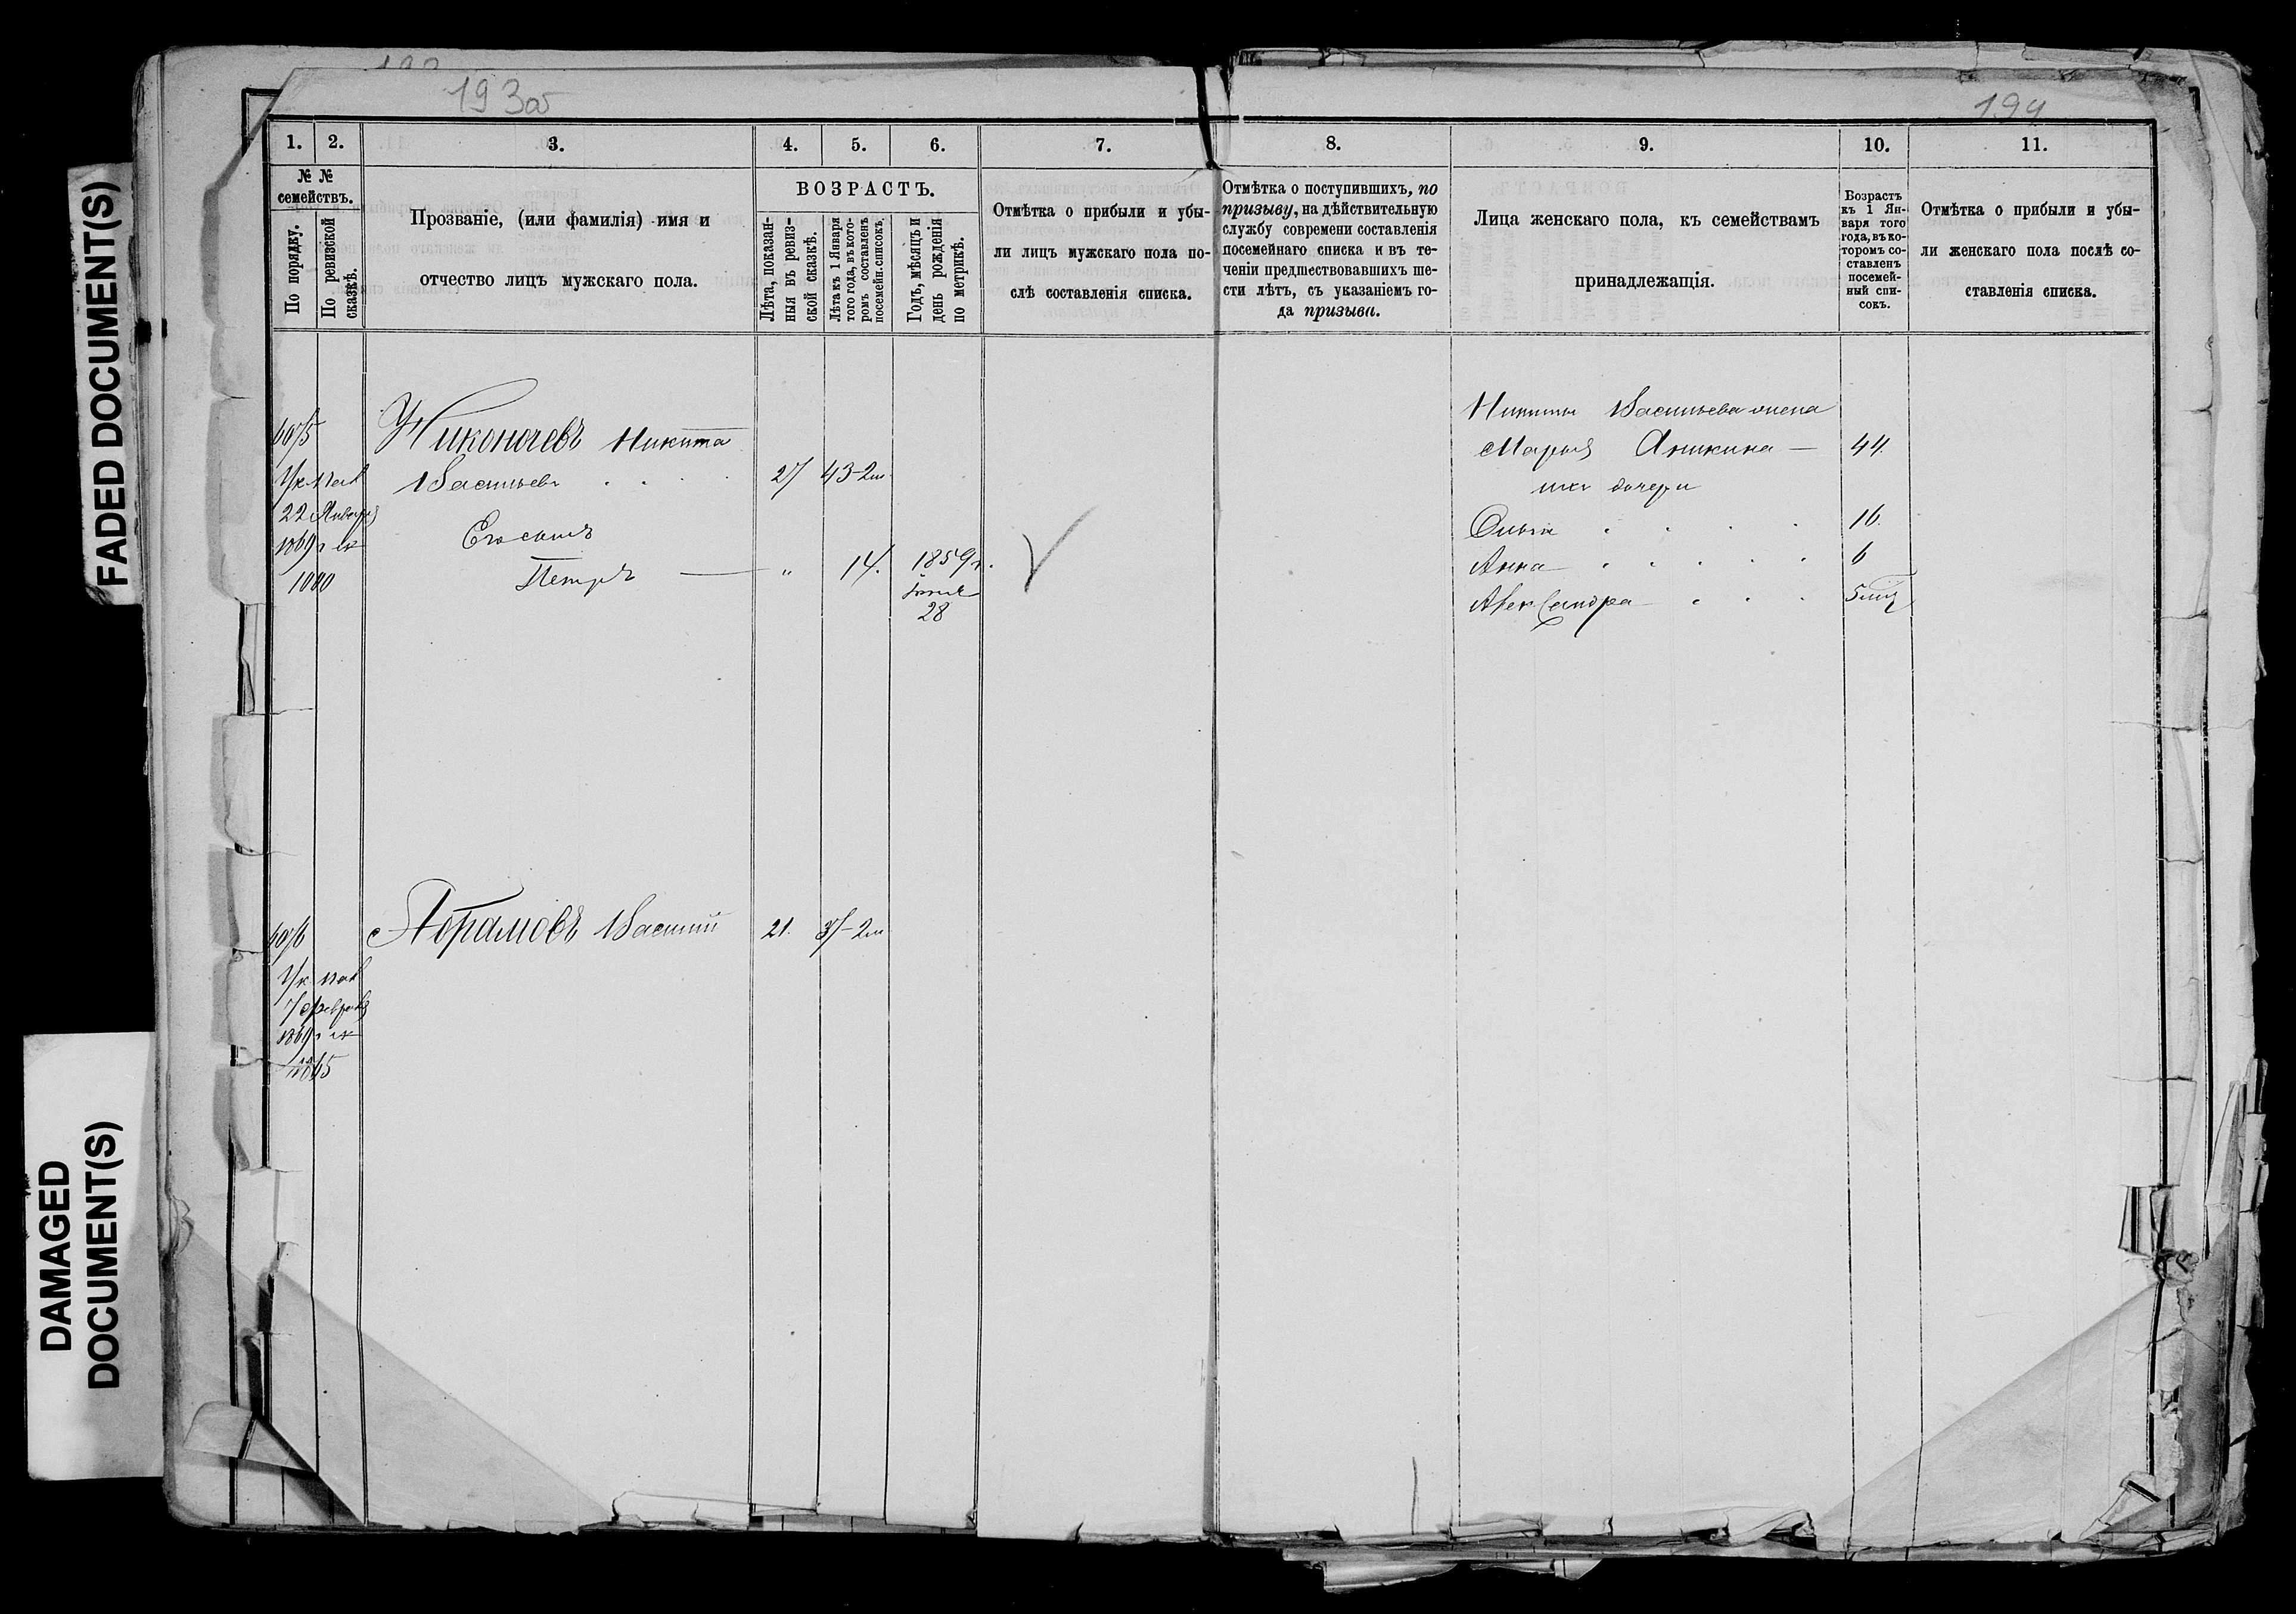 193 об
194
1. 2. 3. 4. 5. 6. 7. 8. 9. 10. 11.
№ №
семействъ.
По порядку.
По ревизской
сказкѣ.
Прозваніе, (или фамилія) имя и
отчество лицъ мужскаго пола.
ВОЗРАСТЪ.
Лѣта, показан-
ныя въ ревиз-
ской сказкѣ.
Лѣта къ 1 Января
того года, въ кото-
ромъ составленъ
посемейн. списокъ.
Годъ, мѣсяцъ и
день рожденія
по метрикѣ.
Отмѣтка о прибыли и убы-
ли лицъ мужскаго пола по-
слѣ составленія списка.
Отмѣтка о поступившихъ, по
призыву, на дѣйствительную
службу современи составленія
посемейнаго списка и въ те-
ченіи предшествовавшихъ ше-
сти лѣтъ, съ указаніемъ го-
да призыва.
Лица женскаго пола, къ семействамъ
принадлежащія.
Возрастъ
къ 1 Ян-
варя того
года, въ ко-
торомъ со-
ставленъ
посемей-
ный спи-
сокъ.
Отмѣтка о прибыли и убы-
ли женскаго пола послѣ со-
ставленія списка.
6075
Ук. пал
22 Января
1869 г. №
1080
Никита
Васильевъ 27 43-2м
Его сынъ
Петръ — „ 14. 1859 г.
Іюня
28
Никиты Васильева жена
Марья Аникина — 44.
ихъ дочери
Ольга 16.
Анна 6
Александра 5 мц
6076
Абрамовъ Василий 21. 37-2м
Ук. пал
7 Февраля
1869 г. №
FADED DOCUMENT(S)
DAMAGED
DOCUMENT(S)